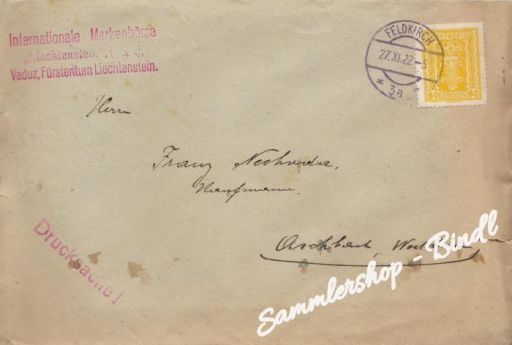 Internationale Markenbörse
"Liechtenstein"
Vaduz, Fürstentum Liechtenstein.
FELDKIRCH
27.XI.22
* 3a *
Herrn
Franz
Kaufmann.
Aschbach,
Drucksache!
Sammlershop - Bindl